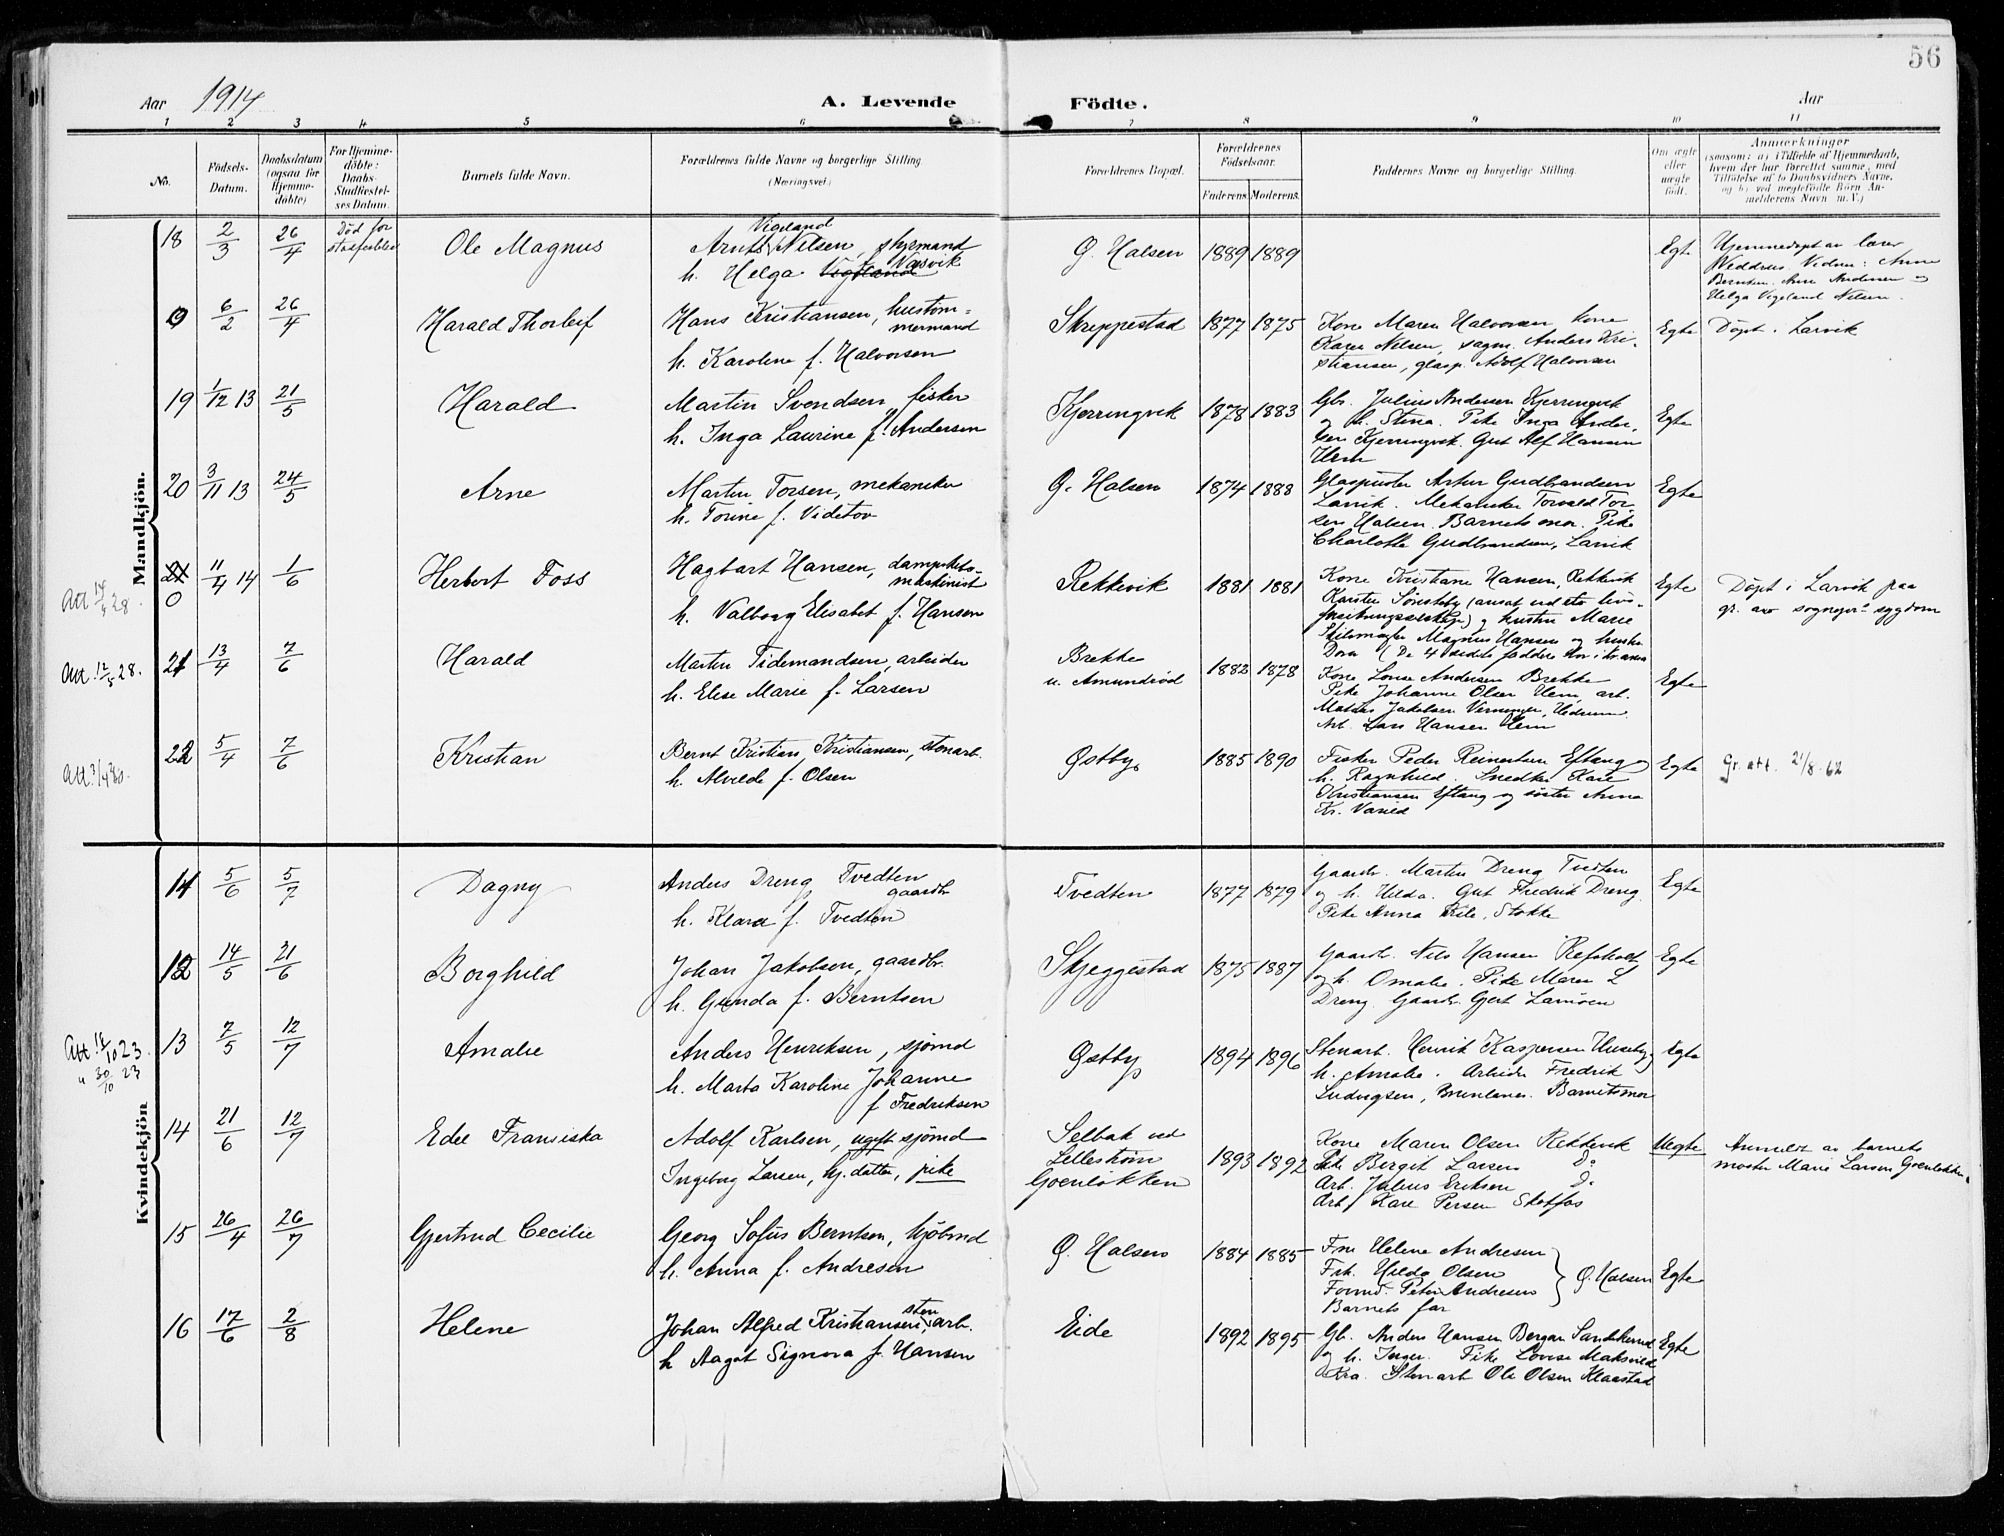 56
Aar 1914 A. Levende Födte. Aar
1 2 3 4 5 6 7 8 9 10 11
No.
Födsels-
Datum.
Daabsdatum
(ogsaa for
Hjemme-
döbte)
For Hjemme-
döbte:
Daabs-
Stadfæstel-
ses Datum.
Barnets fulde Navn.
Forældrenes fulde Navne og borgerlige Stilling.
(Næringsvei.)
Forældrenes Bopæl.
Forældrenes
Födselsaar.
Faderens. Moderens.
Faddernes Navne og borgerlige Stilling.
Om ægte
eller
uægte
födt.
Anmærkninger
(saasom: a) i Tilfælde af Hjemmedaab,
hvem der har forrettet samme, med
Tilföielse af to Daabsvidners Navne,
og b) ved uægtefödte Börn An-
melderens Navn m. V.)
Mandkjön.
18 2/3 26/4 Død før stadfæstelse Ole Magnus
Vigeland
Arnts Nilsen, styrmand
h. Helga Vigeland Næsvik
Ø. Halsen 1889 1889 Egte
Hjemmedøpt av lærer
Weddrus. Vidner: Anne
Berntsen, Anne Andersen og
Helga Vigeland Nilsen.
0 6/2 26/4 Harald Thorleif
Hans Kristiansen, hustøm=
mermand
h. Karoline f. Halvorsen
Skreppestad 1877 1875
Kone Maren Halvorsen, kone
Karen Nilsen, sagm. Anders Kri-
stiansen, glasp. Adolf Halvorsen
Egte Døpt i Larvik
19 1/12 13 21/5 Harald
Martin Svendsen, fisker
h. Inga Laurine f. Andersen
Kjerringvik 1878 1883
Gbr. Julius Andersen Kjerringvik
og h. Stina. Pike Inga Ander-
sen Kjerringvik. Gut Alf Hansen
Hem
Egte
20 3/11 13 24/5 Arne
Martin Torsen, mekaniker
h. Torine f. Videtov
Ø. Halsen 1874 1888
Glaspuster Artur Gudbrandsen
Larvik. Mekaniker Torvald Tor-
sen Halsen. Barnets mor. Pike
Charlotte Gudbrandsen, Larvik
Egte
Att 14/4 28.
0 11/4 14 1/6 Herbert Foss
Hagbart Hansen, dampskibs-
maskinist
h. Valborg Elisabet f. Hansen
Rekkevik 1881 1881
Kone Kristiane Hansen, Rekkevik
Karsten Sønsteby (ansat ved sto livs-
forsikringsselskap) og hustru Marie
Skilsmager Magnus Hansen og hustru
Dora (De 4 sidste faddere bor i Kr.ania
Egte
Døpt i Larvik paa
gr. av sogneprs sygdom
Att. 12/5 28.
21 13/4 7/6 Harald
Martin Tidemandsen, arbeider
h. Elise Marie f. Larsen
Brekke
u. Amundrød
1882 1878
Kone Louise Andersen Brekke
Pike Johanne Olsen Hem arb.
Arb. Lars Hansen Hem
Egte
Att 3/4 30.
22 5/4 7/6 Kristian
Bernt Kristian Kristiansen, stenarb.
h. Alvilde f. Olsen
Østby 1885 1890
Fisker Peder Reinertsen Eftang og
h. Ragnhild. Snedker Kare
Kristiansen Eftang og søster Anna
Kr. Varild
Egte Gr. att. 21/8-62
Kvindekjön
11 5/6 5/7 Dagny
Anders Dreng Tvedten
gaardbr.
h. Klara f. Tvedten
Tvedten 1877 1879
Gaardbr. Martin Dreng Tvedten
og h. Hilda. Gut Fredrik Dreng.
Pike Anna Kile, Stokke
Egte
12 14/5 21/6 Borghild
Johan Jakobsen, gaardbr.
h. Gunda f. Berntsen
Skjeggestad 1875 1887
Gaardbr. Nils Hansen Refsholt
og h. Omalie. Pike Maren L
Dreng. Gaardbr. Gjert Lamøen
Egte
Att. 18/10 23.
" 30/10 23
13 7/5 12/7 Amalie
Anders Henriksen, sjømd
h. Marta Karoline Johanne
f Fredriksen
Østby 1894 1896
Stenarb. Henrik Kaspersen Huseby og
h. Amalie. Arbeider Fredrik
Ludvigsen, Brunlanes. Barnets mor
Egte
14 21/6 12/7 Edel Fransiska
Adolf Karlsen, ugift sjømd
Ingeborg Larsen, hj. datter, pike
Selbak ved
Lillestrøm
Goenløkken
1893 1892
Kone Maren Olsen Rekkevik
Pike Bergit Larsen Do
Arb. Julius Eriksen Do
Arb. Kare Persen Skotfos
Uegte
Anmeldt av barnets
moster Marie Larsen Goenløkken.
15 26/4 26/7 Gjertrud Cecilie
Georg Sofus Berntsen, kjøbmd
h. Anna f. Andresen
Ø. Halsen 1884 1885
Fru Helene Andresen
Frk. Hilda Olsen
Formd. Peter Andresen
Ø. Halsen
Barnets far
Egte
16 17/6 2/8 Helene
Johan Alfred Kristiansen, stenarb.
h Aagot Signora f. Hansen
Eide 1892 1895
Gb. Anders Hansen Bergan Sandkerud
og h. Inger. Pike Lovise Maksvild
Kra. Stenarb Ole Olsen Klaastad
Egte